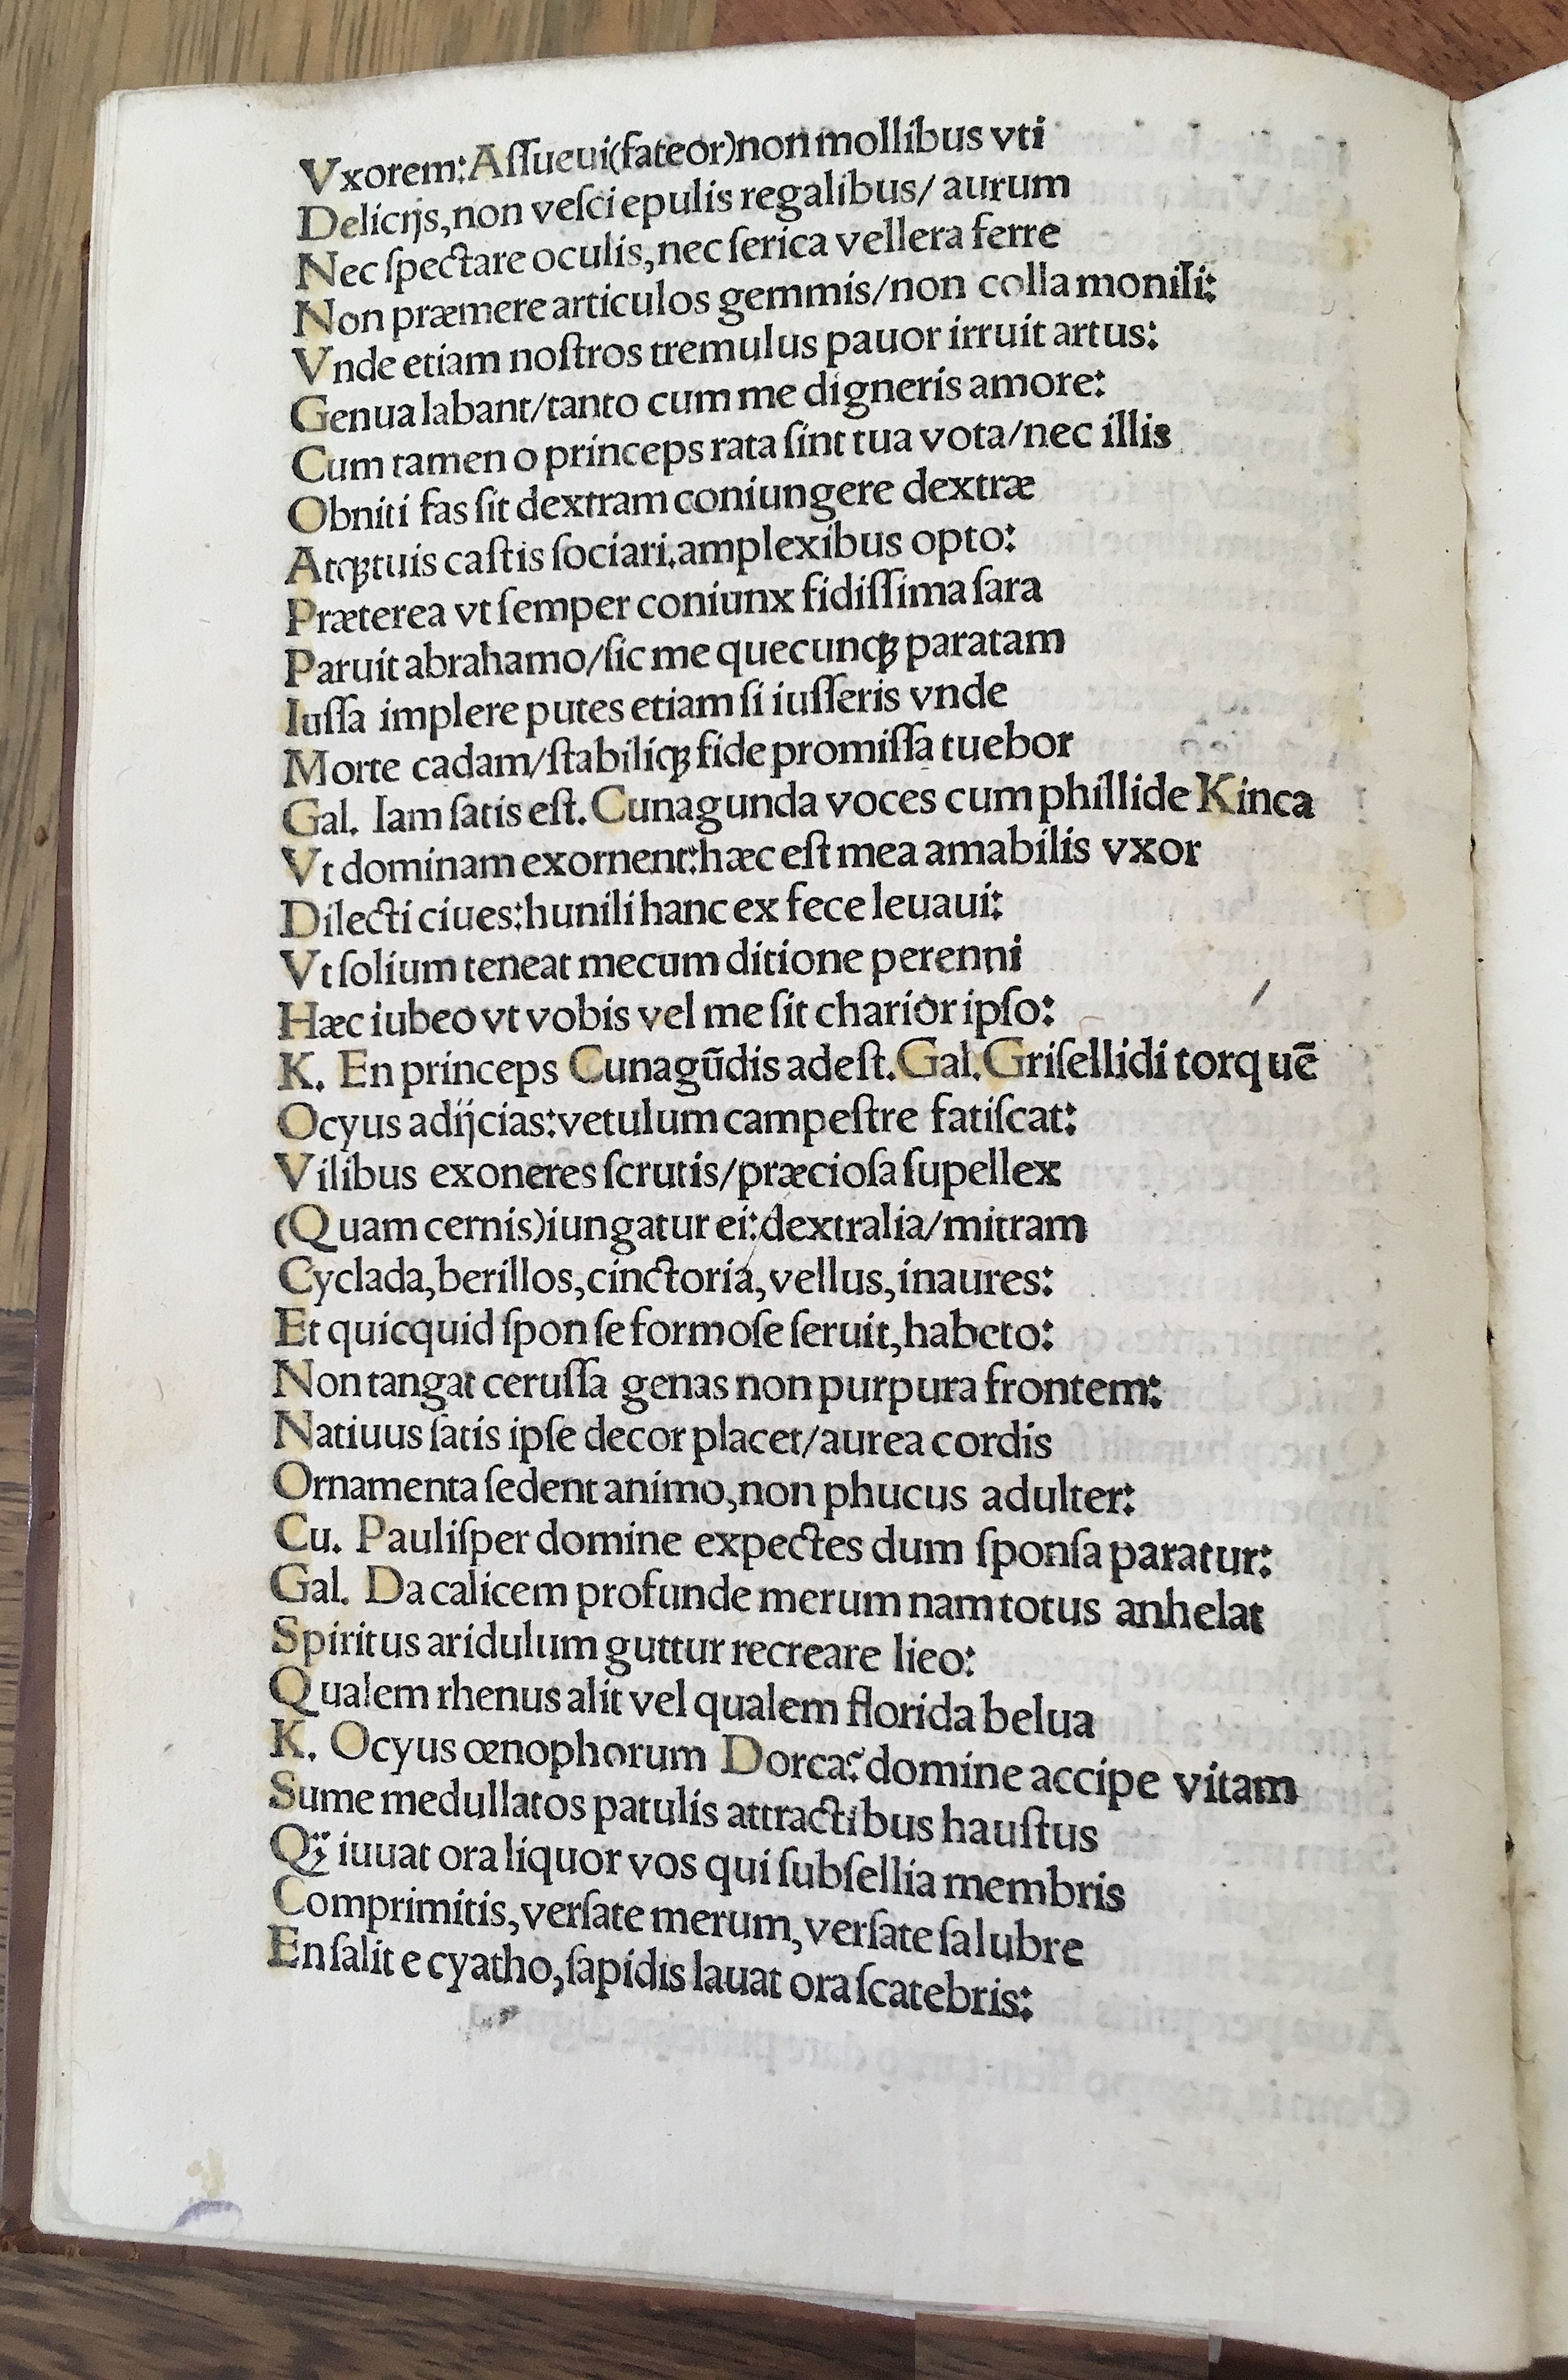 Vxorem:Aſſueui(fateor)non mollibus vti
Delicijs,non veſci epulis regalibus/ aurum
Nec ſpectare oculis,nec ſerica vellera ferre
Non præmere articulos gemmis/non colla monili:
Vnde etiam noſtros tremulus pauor irruit artus:
Genua labant/tanto cum me digneris amore:
Cum tamen o princeps rata ſint tua vota/nec illis
Obniti fas ſit dextram coniungere dextræ
Atqꝫ tuis caſtis ſociari.amplexibus opto:
Præterea vt ſemper coniunx fidiſſima ſara
Paruit abrahamo/ſic me quecunqꝫ paratam
Iuſſa implere putes etiam ſi iuſſeris vnde
Morte cadam/ſtabiliqꝫ fide promiſſa tuebor
Gal. Iam ſatis eſt. Cunagunda voces cum phillide Kinca
Vt dominam exornent:hæc eſt mea amabilis vxor
Dilecti ciues:hunili hanc ex fece leuaui:
Vt ſolium teneat mecum ditione perenni
Hæc iubeo vt vobis vel me ſit charior ipſo:
K. En princeps Cunagūdis adeſt. Gal. Griſellidi torquē
Ocyus adijcias:vetulum campeſtre fatiſcat:
Vilibus exoneres ſcrutis/præcioſa ſupellex
(Quam cernis)iungatur ei:dextralia/mitram
Cyclada,berillos,cinctoria,vellus,inaures:
Et quicquid ſponſe formoſe ſeruit,habeto:
Non tangat ceruſſa genas non purpura frontem:
Natiuus ſatis ipſe decor placet/aurea cordis
Ornamenta ſedent animo,non phucus adulter:
Cu. Pauliſper domine expectes dum ſponſa paratur:
Gal. Da calicem profunde merum nam totus anhelat
Spiritus aridulum guttur recreare lieo:
Qualem rhenus alit vel qualem florida belua
K. Ocyus œnophorum Dorca:domine accipe vitam
Sume medullatos patulis attractibus hauſtus
Qꝫ iuuat ora liquor vos qui ſubſellia membris
Comprimitis,verſate merum,verſate ſalubre
En ſalit e cyatho,ſapidis lauat ora ſcatebris: